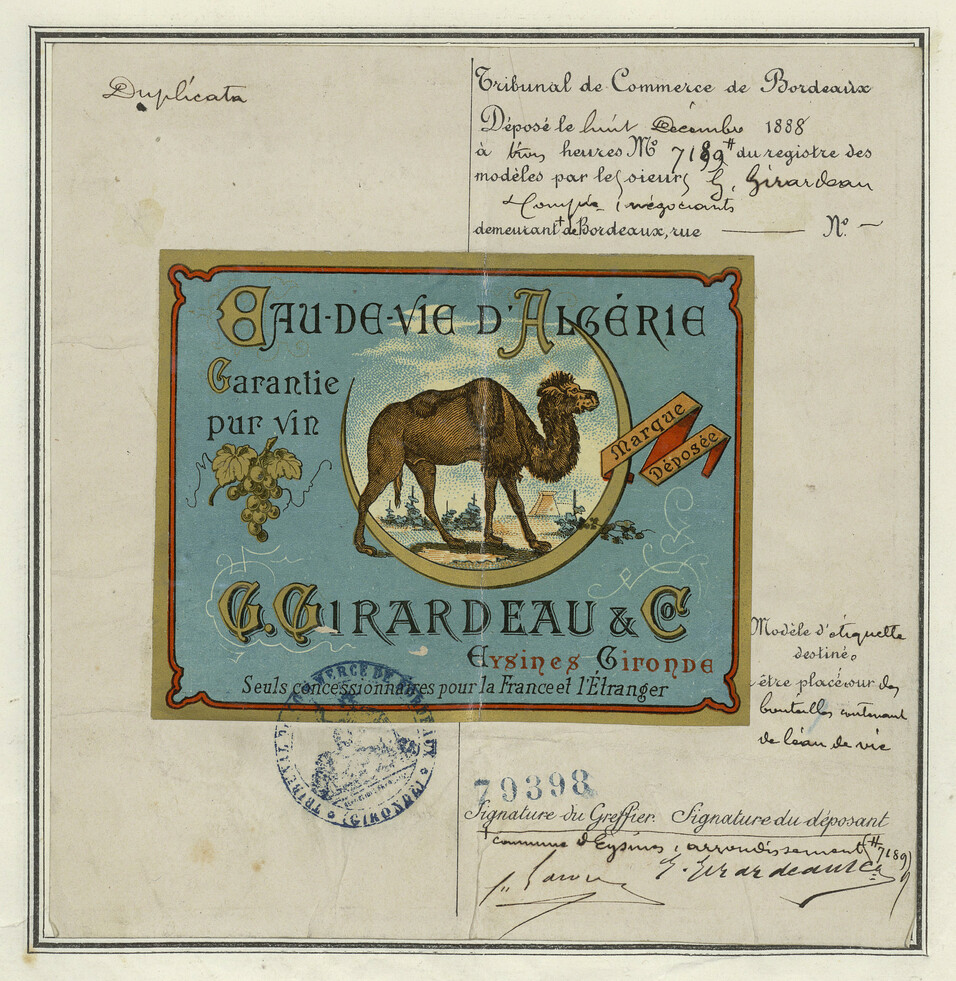 Duplicata
Tribunal de Commerce de Bordeaux
Déposé le huit Décembre 1888
à trois heures Mº 7189# du registre des
modèles par les sieurs G. Girardeau
Compie négociants
demeurantt de Bordeaux, rue — Nº. —
EAU-DE-VIE D'ALGÉRIE
Garantie
pur vin
Marque
Déposée
G. GIRARDEAU & Co
EYSINES GIRONDE
Seuls concessionnaires pour la France et l'Étranger
Modèle d'étiquette
destiné
être placé sur des
bouteilles contenant
de l'eau de vie
TRIBUNAL DE COMMERCE DE BORDEAUX
(GIRONDE)
79398
Signature du Greffier. Signature du déposant
t commune d'Eysines, arrondissement (# 7189)
G. Girardeau & Cie